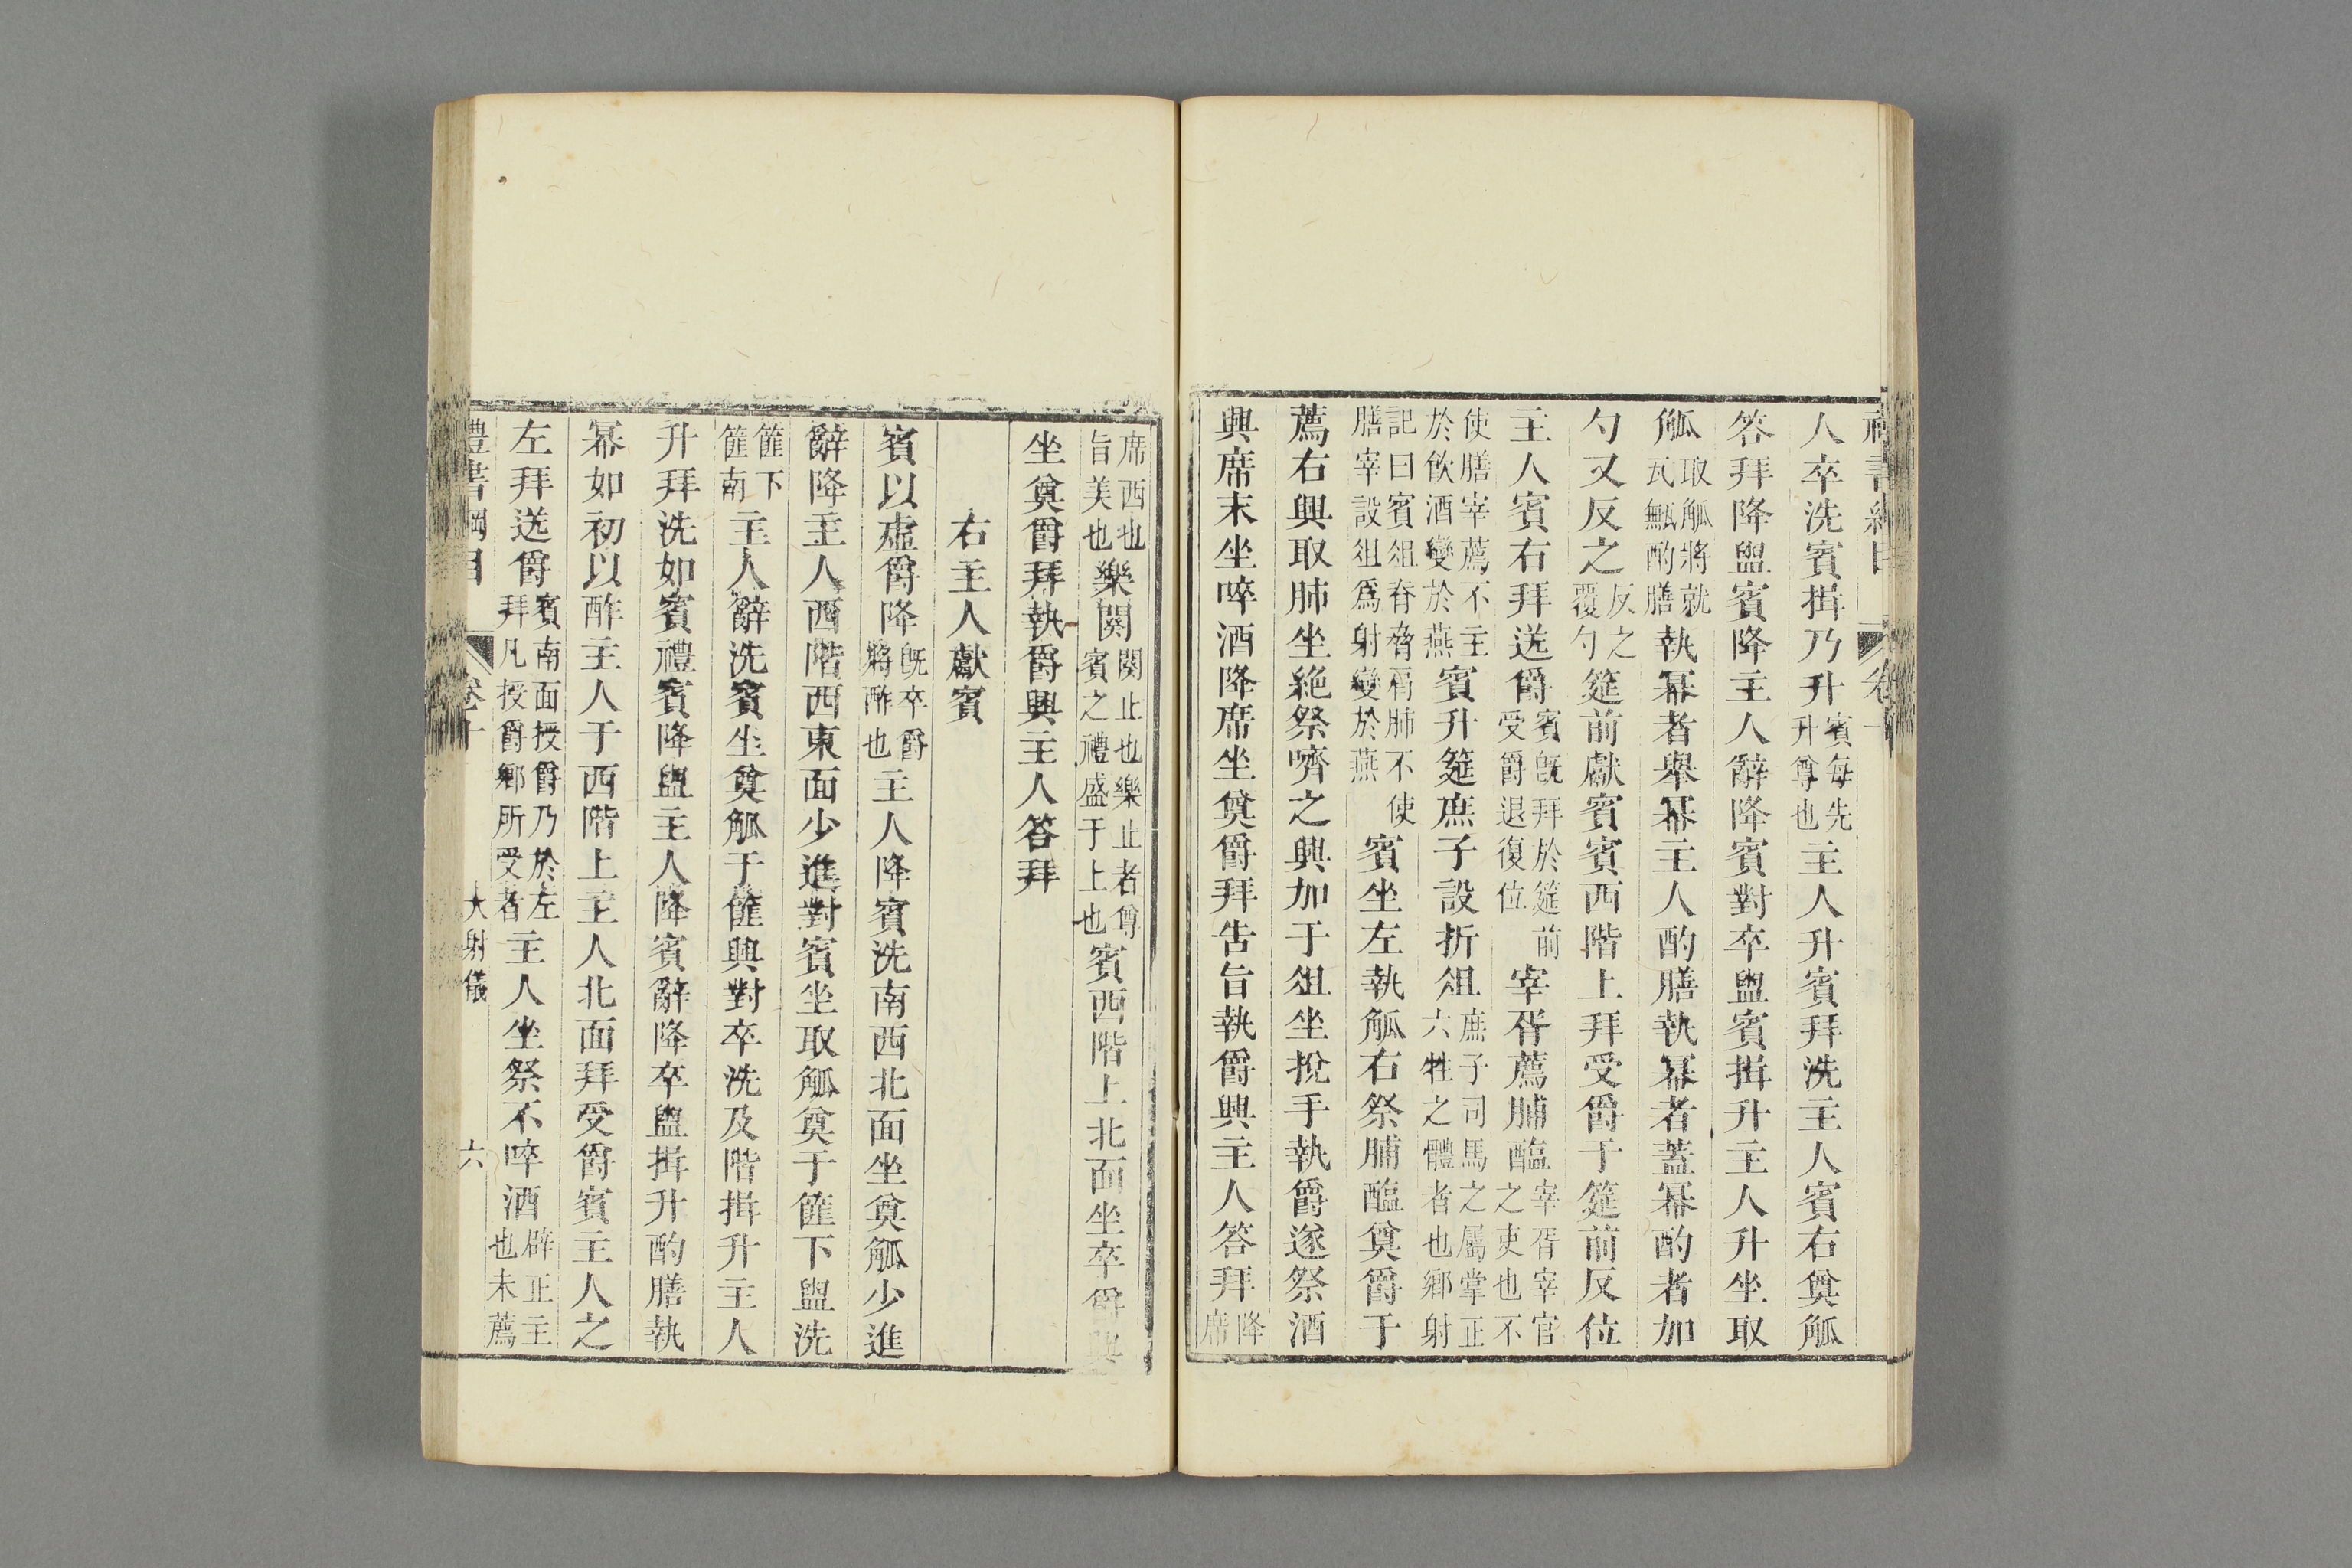 人卒洗賓揖乃升賓每先升尊也主人升賓拜洗主人賓右奠觚
答拜降盥賓降主人辭降賓對卒盥賓揖升主人升坐取
觚取觚將就瓦甒酌膳執冪者舉冪主人酌膳執冪者蓋冪酌者加
勺又反之反之覆勺筵前獻賓賓西階上拜受爵于筵前反位
主人賓右拜送爵賓旣拜於筵前受爵退復位宰胥薦脯醢宰胥宰官之吏也不
使膳宰薦不主於飲酒變於燕賓升筵庶子設折俎庶子司馬之屬掌正六牲之體者也鄉射
記曰賓俎脊脅肩肺不使膳宰設俎爲射變於燕賓坐左執觚右祭脯醢奠爵于
薦右興取肺坐絶祭嚌之興加于俎坐挩手執爵遂祭酒
興席末坐啐酒降席坐奠爵拜告旨執爵興主人答拜降席
席西也旨美也樂闋闋止也樂止者尊賓之禮盛于上也賓西階上北面坐卒爵興
坐奠爵拜執爵興主人答拜
右主人獻賓
賓以虛爵降旣卒爵將酢也主人降賓洗南西北面坐奠觚少進
辭降主人西階西東面少進對賓坐取觚奠于篚下盥洗
篚下篚南主人辭洗賓坐奠觚于篚興對卒洗及階揖升主人
升拜洗如賓禮賓降盥主人降賓辭降卒盥揖升酌膳執
冪如初以酢主人于西階上主人北面拜受爵賓主人之
左拜送爵賓南面授爵乃於左拜凡授爵鄉所受者主人坐祭不啐酒辟正主也未薦
禮書綱目 卷十 大射儀 六